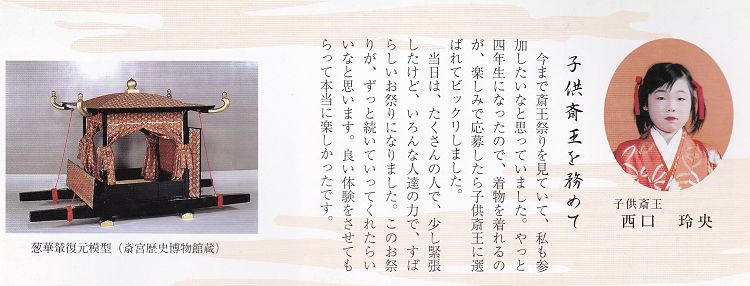 子供斎王
西口 玲央
子供斎王を務めて
今まで斎王祭りを見ていて、私も参
加したいなと思っていました。やっと
四年生になったので、着物を着れるの
が、楽しみで応募したら子供斎王に選
ばれてビックリしました。
当日は、たくさんの人で、少し緊張
したけど、いろんな人達の力で、すば
らしいお祭りになりました。このお祭
りが、ずっと続いていってくれたらい
いなと思います。良い体験をさせても
らって本当に楽しかったです。
葱華輦復元模型（斎宮歴史博物館蔵）